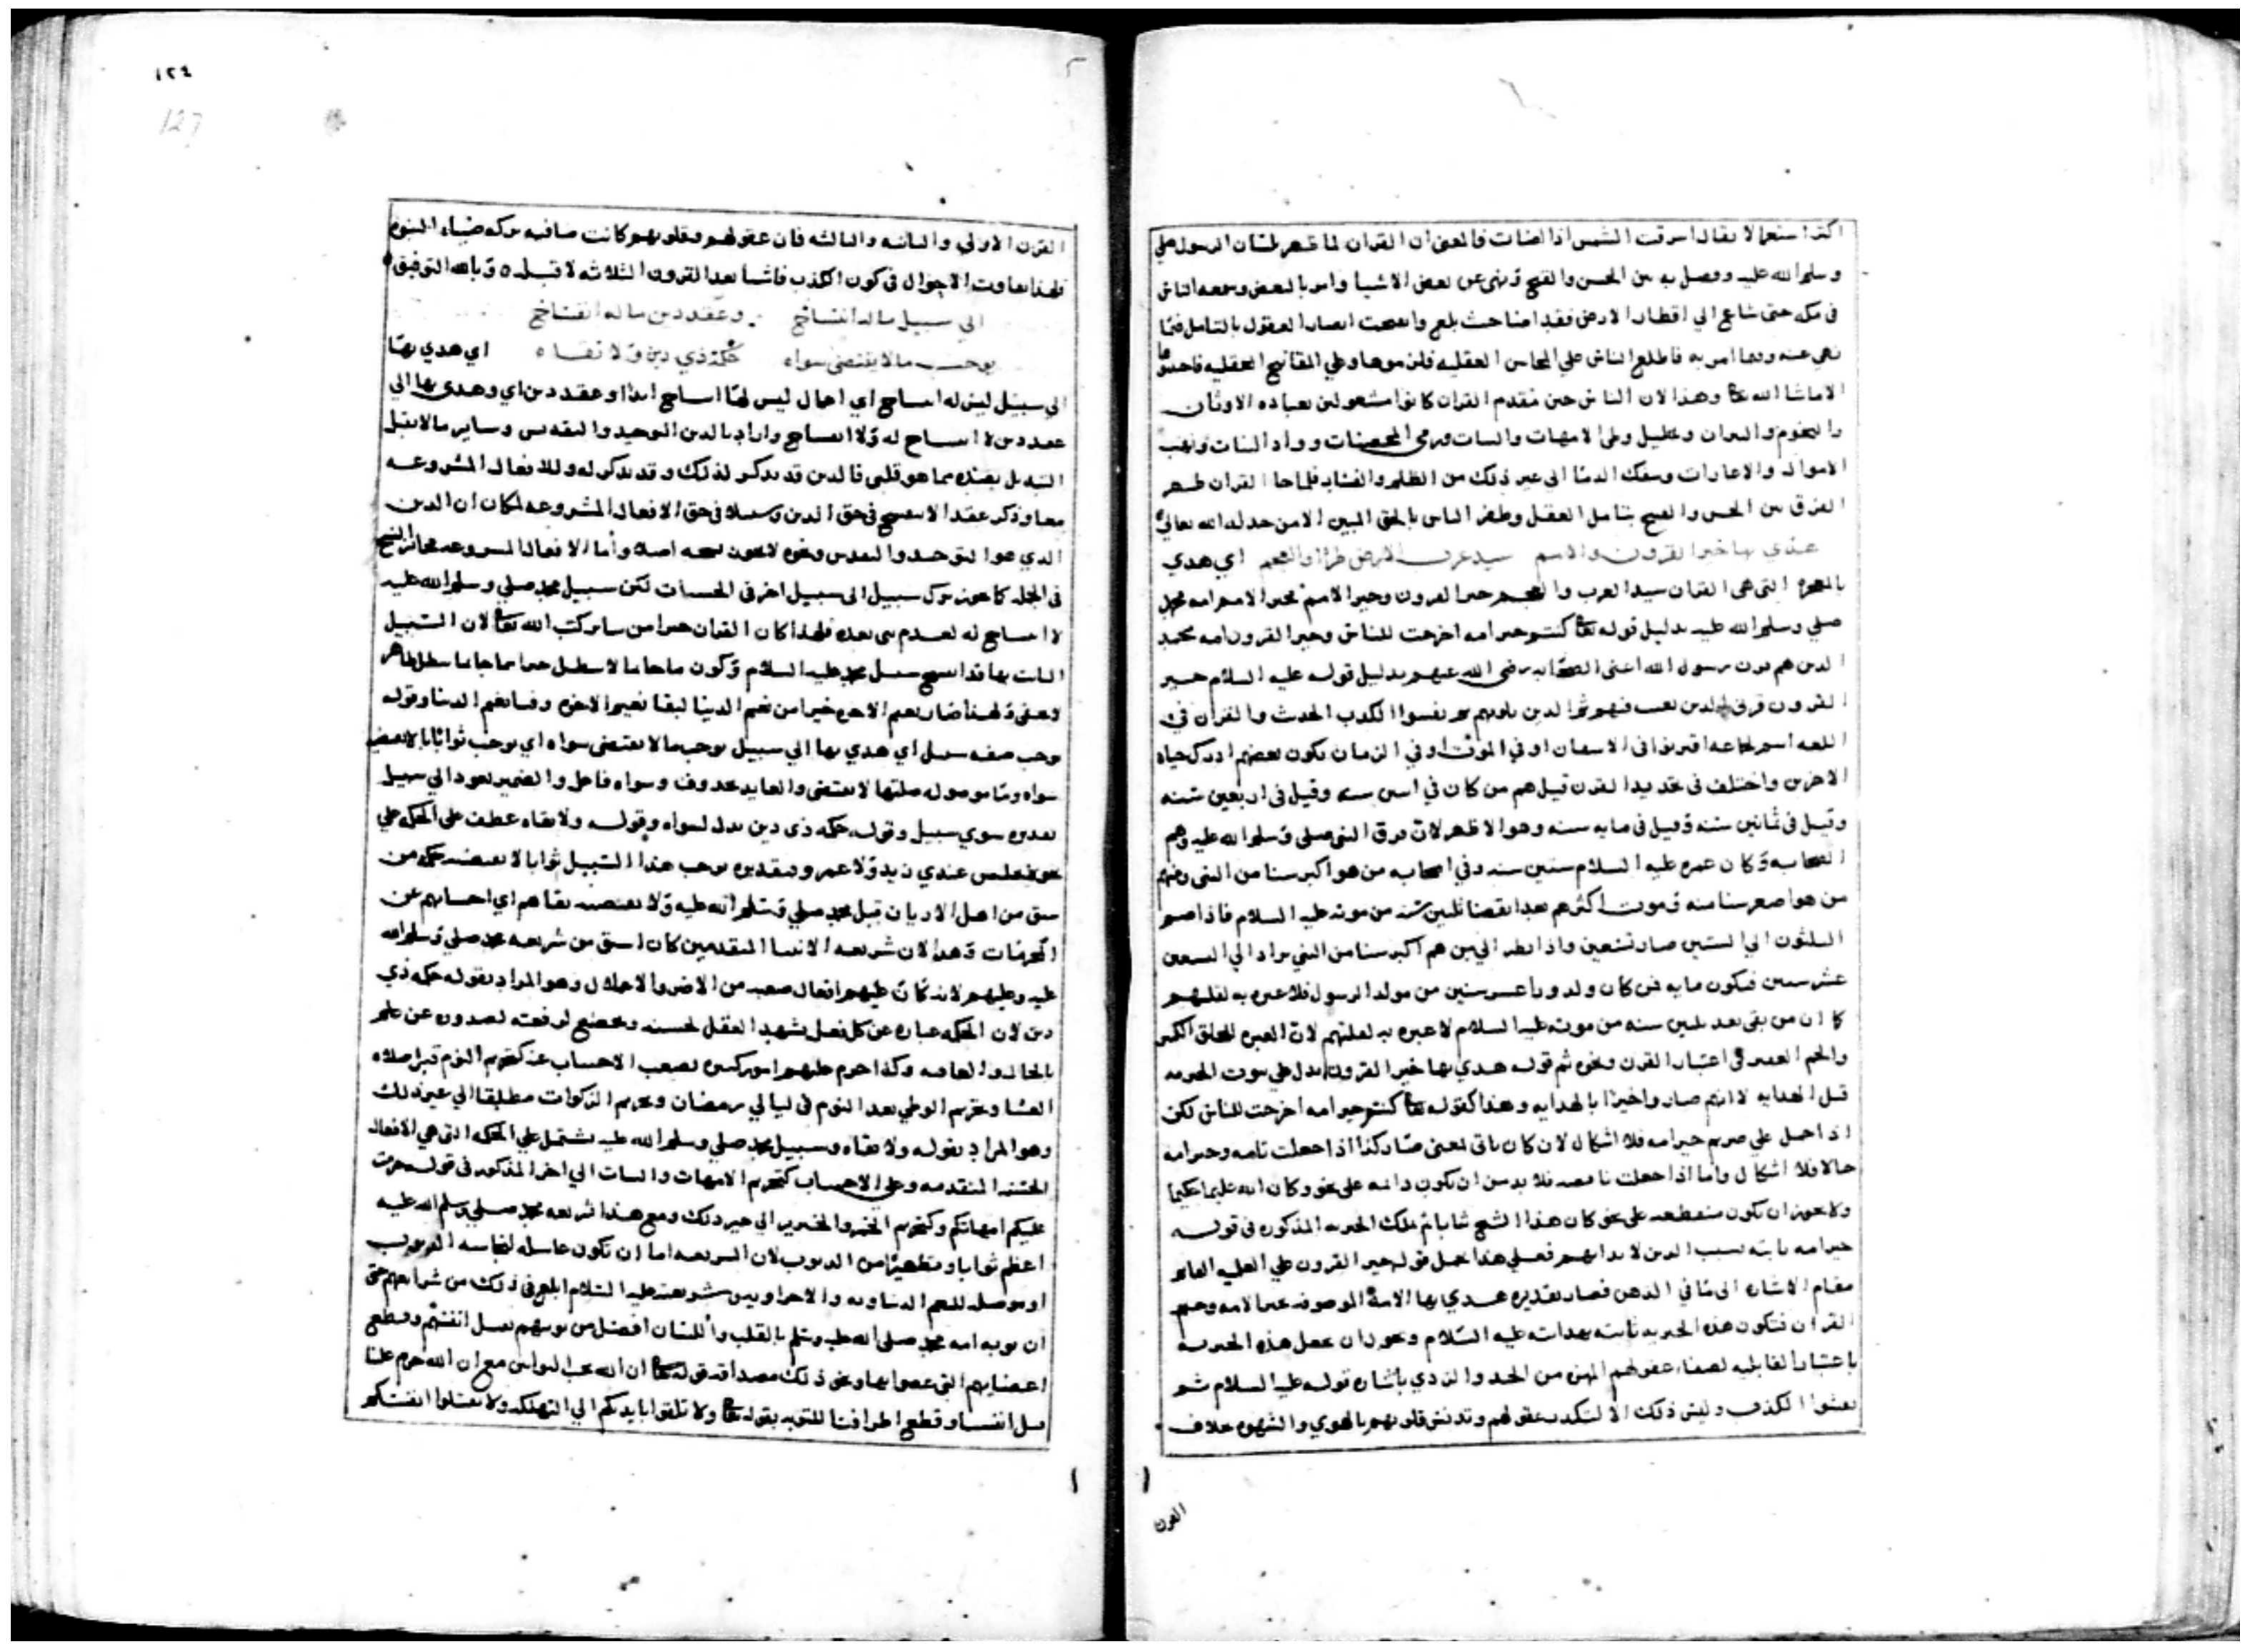 اكثر استعمالا يقال اشرقت الشمس اذا اضات فالمعنى ان القران لما ظهر لسان الرسول صلي
وسلم الله عليه وفصل به بين الحسن والقبح ونهى عن بعض الاشيا وامر بالبعض وسمعه الناس
في مكه حتى شاع الي اقطار الارض فقد اضا حيث بلغ وانفتحت ابصار العقول بالتامل فيما
نهي عنه وفيما امر به فاطلع الناس علي المحاسن العقليه فلزموها وعلي القبايح العقليه
الا ماشا الله تعا وهذا لان الناس حين مقدم القران كانوا مشغولين بعباده الاوثان
والنجوم والنيران وتحليل وطى الامهات والبنات ورمي المحصنات وواد البنات ونهب
الاموال والاغارات وسفك الدما الى غير ذلك من الظلم والفساد فلما جا القران ظهر
الفرق بين الحسن والقبح بتامل العقل وظفر الناس بالحق المبين الا من خذله الله تعالى
هدي بها خير القرون والامم سيد عرب الارض طرا والعجم اي هدي
بالمعجزه التي هي القران سيد العرب والعجم خير القرون وخير الامم فخير الامم امه محمد
صلي وسلم الله عليه بدليل قوله تعا كنتم خير امه اخرجت للناس وخير القرون امه محمد
الذين هم قرن رسول الله اعنى الصحابه رضي الله عنهم بدليل قوله عليه السلام خير
القرون قرني الذين بعثت فيهم ثم الذين يلونهم ثم يفشوا الكذب الحديث والقرن في
اللغه اسم لجماعه اقترنوا في الاسنان او في الموت او في الزمان بكون بعضهم ادرك حياه
الاخرين واختلف في تحديد القرن قيل هم من كان في سنه وقيل في اربعين سنه
وقيل في ثمانين سنه وقيل في مايه سنه وهو الاظهر لان قرن النبي صلي وسلم الله عليه هم
الصحابه وكان عمره عليه السلام ستين سنه وفي اصحابه من هو اكبر سنا من النبي ومنهم
من هو اصغر سنا منه وموت اكثرهم بعد انقضا ثلثين سنه من موته عليه السلام فاذا ضم
الثلثون الي الستين صار تسعين واذا نظر الي من هم اكبر سنا من النبي يزاد الي التسعين
عشر سنين فيكون مايه فمن كان ولد ورا عشر سنين من مولد الرسول فلا عبره به لقلتهم
كما ان من بقى بعد ثلثين سنه من موته عليه السلام لا عبره به لقلتهم لان العبره للخلق الكثير
والجم الغفير في اعتبار القرن ونحوه ثم قوله هدي بها خير القرون يدل علي ثبوت الخيريه
قبل الهدايه لا انهم صاروا خيرا بالهدايه وهذا كقوله تعا كنتم خير امه اخرجت للناس لكن
اذا حمل علي صرتم خير امه فلا اشكال لان كان ياتي لمعنى صار وكذا اذا جعلت تامه وخير امه
حالا فلا اشكال واما اذا جعلت ناقصه فلا بد من ان تكون دائمه على نحو وكان الله عليما حكيما
ولا يجوز ان تكون منقطعه على نحو كان هذا الشيخ شابا ثم تلك الخيريه المذكوره في قوله
خير امه ثابته بسبب الدين لا بذاتهم فعلي هذا يحمل قوله خير القرون علي
مقام الاشاره الى ما في الذهن فصار تقديره هدي بها الامة الموصوفه بخير الامه وخير
القران فتكون هذه الخيريه ثابته بهدايته عليه السلام ويجوز ان يجعل هذه الخيريه
باعتبار القابليه لصفاء عقولهم المميزه بين الجيد والردي باشاره قوله عليه السلام ثم
يفشوا الكذب وليس ذلك الا لتكدر عقولهم وتدنس قلوبهم بالهوي والشهوه خلاف
القرن
١٢٤
127
القرن الاولي والثانيه والثالثه فان عقولهم وقلوبهم كانت صافيه ببركه ضياء النبوه
فلهذا تفاوت الاحوال في كون الكذب فاشيا بعد القرون الثلاثه لا قبله ٥ وبالله التوفيق
الي سبيل ماله انتساخ وعقد دين ماله انفساخ
يوجب مالا يقتضى سواه حكمة ذي دين ولا تقاه اي هدي بها
الى سبيل ليس له انتساخ اي اعمال ليس لها انتساخ ابدا وعقد دين اي وهدى بها الي
عقد دين لا انتساخ له ولا انفساخ واراد بالدين التوحيد والتقديس وساير مالا يقبل
التبديل بضده مما هو قلبي فالدين قد يذكر لذلك وقد يذكر له وللافعال المشروعه
معا وذكر عقد الا ينفسخ في حق الدين وسبيلا في حق الافعال المشروعه لمكان ان الدين
الذي هو التوحيد والتقديس ونحوه لا يجوز نسخه اصلا وأما الافعال المشروعه فجائز النسخ
في الجمله كما يجوز ترك سبيل الى سبيل اخر في الحسيات لكن سبيل محمد صلي وسلم الله عليه
لا انتساخ له لعدم نبى بعده فلهذا كان القران خيرا من ساير كتب الله تعا لان السبيل
الثابت بها قد انتسخ بسبيل محمد عليه السلام وكون ما جا بما لا يبطل خيرا مما جا بما يبطل ظاهر
لا يخفى ولهذا صار نعيم الاخره خيرا من نعيم الدنيا لبقا نعيم الاخره وفنا نعيم الدنيا وقوله
يوجب صفه سبيل اي هدي بها الي سبيل يوجب ما لا يقتضى سواه اي يوجب ثوابا لا يقتضيه
سواه وما موصوله صلتها لا يقتضى والعايد محذوف وسواه فاعل والضمير يعود الي سبيل
تقديره سوي سبيل وقوله حكمه ذي دين بدل لسواه وقوله ولا تقاه عطف على الحكمه علي
نحو جلس عندي زيد ولا عمرو وتقديره يوجب هذا السبيل ثوابا لا يقتضيه حكمه من
سبق من اهل الاديان قبل محمد صلي وسلم الله عليه ولا يقتضيه تقاهم اي اجتنابهم عن
المحرمات وهذا لان شريعه الانبيا المتقدمين كان اشق من شريعه محمد صلي وسلم الله
عليه وعليهم لانه كان عليهم افعال صعبه من الاصر والاغلال وهو المراد بقوله حكمه ذي
دين لان الحكمه عباره عن كل فعل يشهد العقل لحسنه ويخضع لرفعته لصدوره عن علم
بالحال والعاقبه وكذا حرم عليهم امور كثيره يصعب الاجتناب عنه كتحريم النوم قبل صلاه
العشا وتحريم الوطي بعد النوم في ليالي رمضان وتحريم الزكوات مطلقا الي غير ذلك
وهو المراد بقوله ولا تقاه وسبيل محمد صلي وسلم الله عليه يشتمل علي الحكمه التي هي الافعال
الحسنه المتقدمه وعلي الاجتناب كتحريم الامهات والبنات الي اخر المذكور في قوله حرمت
عليكم امهاتكم وكتحريم الخمر والخنزير الي غير ذلك ومع هذا شريعه محمد صلي وسلم الله عليه
اعظم ثوابا وتطهيرا من الذنوب لان الشريعه اما ان تكون غاسله لنجاسه الذنوب
او موصله للنعم الدنياويه والاخراويه وشريعته عليه السلام ابلغ في ذلك من شرائعهم حتى
ان توبه امه محمد صلى الله عليه وسلم بالقلب واللسان افضل من توبتهم بقتل انفسهم وقطع
اعضايهم التي عصوا بها ونحو ذلك مصداقه قوله تعا ان الله يحب التوابين مع ان الله حرم علينا
قتل انفسنا وقطع اطرافنا للتوبه بقوله تعا ولا تلقوا بايديكم الي التهلكه ولا تقتلوا انفسكم